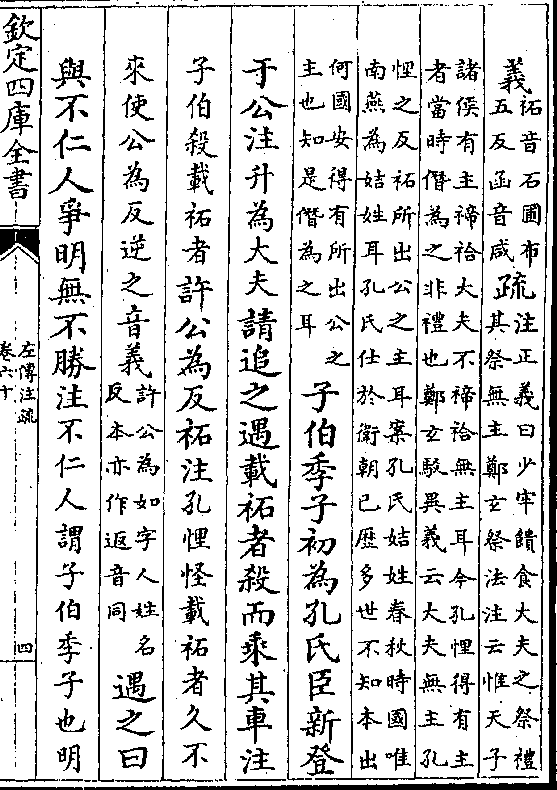 義祏音石圃布五反函音咸疏注正義曰少牢饋食大夫之祭禮其祭無主鄭玄祭法注云惟天子
諸侯有主禘祫大夫不禘祫無主耳今孔悝得有主
者當時僭為之非禮也鄭玄駮異義云大夫無主孔
悝之反祏所出公之主耳案孔氏姞姓春秋時國唯
南燕為姞姓耳孔氏仕於衛朝已歷多世不知本出
何國安得有所出公之主也知是僭為之耳子伯季子初為孔氏臣新登
于公注升為大夫請追之遇載祏者殺而乘其車注
子伯殺載祏者許公為反祏注孔悝怪載祏者久不
來使公為反逆之音義許公為如字人姓名反本亦作返音同遇之曰
與不仁人爭明無不勝注不仁人謂子伯季子也明
欽定四庫全書
左傳注疏
卷六十
四